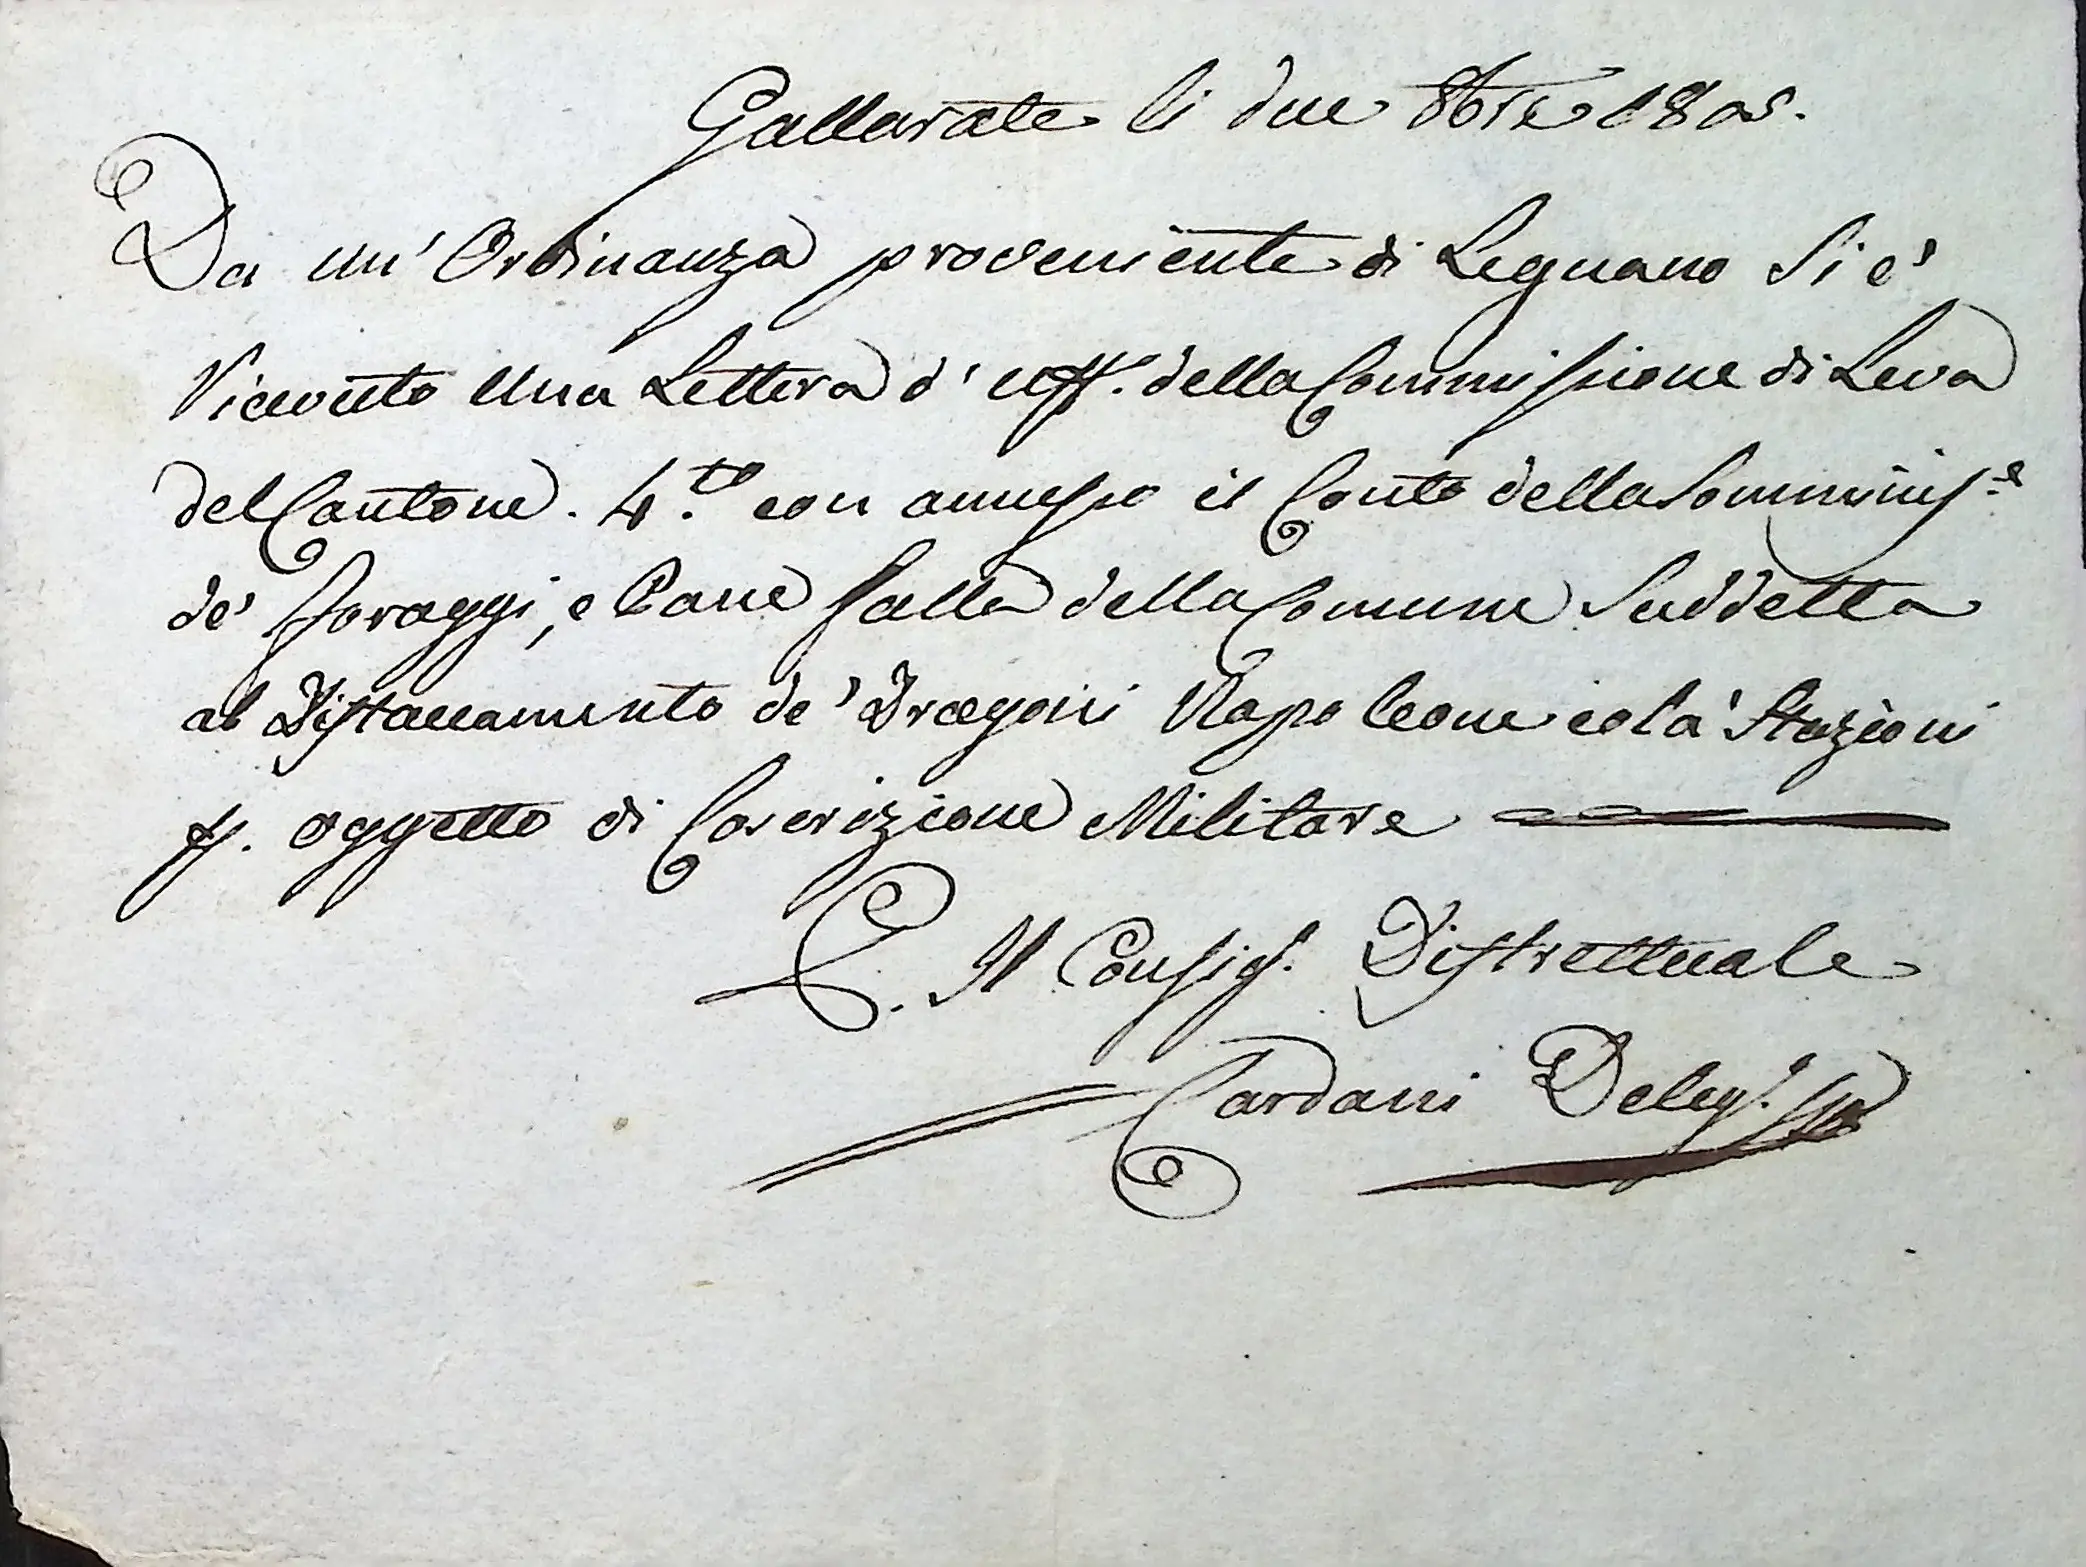 Gallarate li due 8bre 1805.
Da un' Ordinanza proveniente di Legnano si è
ricevuto una Lettera d' uff.° della Commissione di Leva
del Cantone. 4.to con annesso il Conto della Somminis.e
de' foraggi, e Pane fatta della Comune Suddetta
al Distaccamento de' Dragoni Napoleone colà Stazioni
p. oggetto di Coscrizione Militare
P. Il Consig.r Distrettuale
Cardani Deleg.